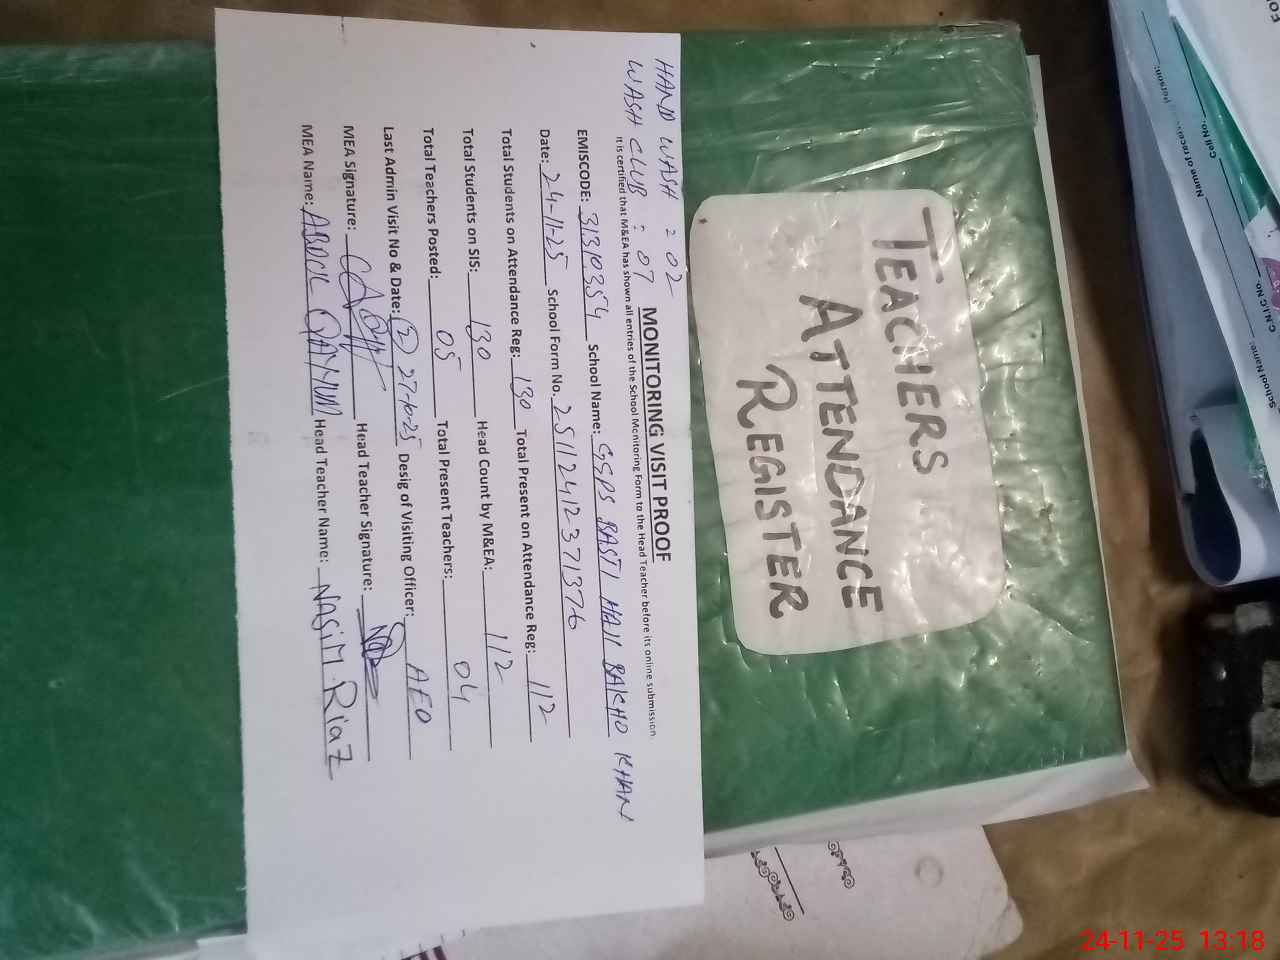 HAND WASH = 02
WASH CLUB : 07
MONITORING VISIT PROOF
It is certified that M&EA has shown all entries of the School Monitoring Form to the Head Teacher before its online submission.
EMISCODE: 31310354 School Name: GGPS BASTI HAJI BAKHO KHAN
Date: 24-11-25 School Form No. 25112412371376
Total Students on Attendance Reg: 130 Total Present on Attendance Reg: 112
Total Students on SIS: 130 Head Count by M&EA: 112
Total Teachers Posted: 05 Total Present Teachers: 04
Last Admin Visit No & Date: (2) 27-10-25 Desig of Visiting Officer: AEO
MEA Signature: Head Teacher Signature:
MEA Name: ABDUL QAYYUM Head Teacher Name: NASIM RiaZ
TEACHERS
ATTENDANCE
REGISTER
School Name:
C.N.I.C No.
Cell No.
Name of
Person:
24-11-25 13:18